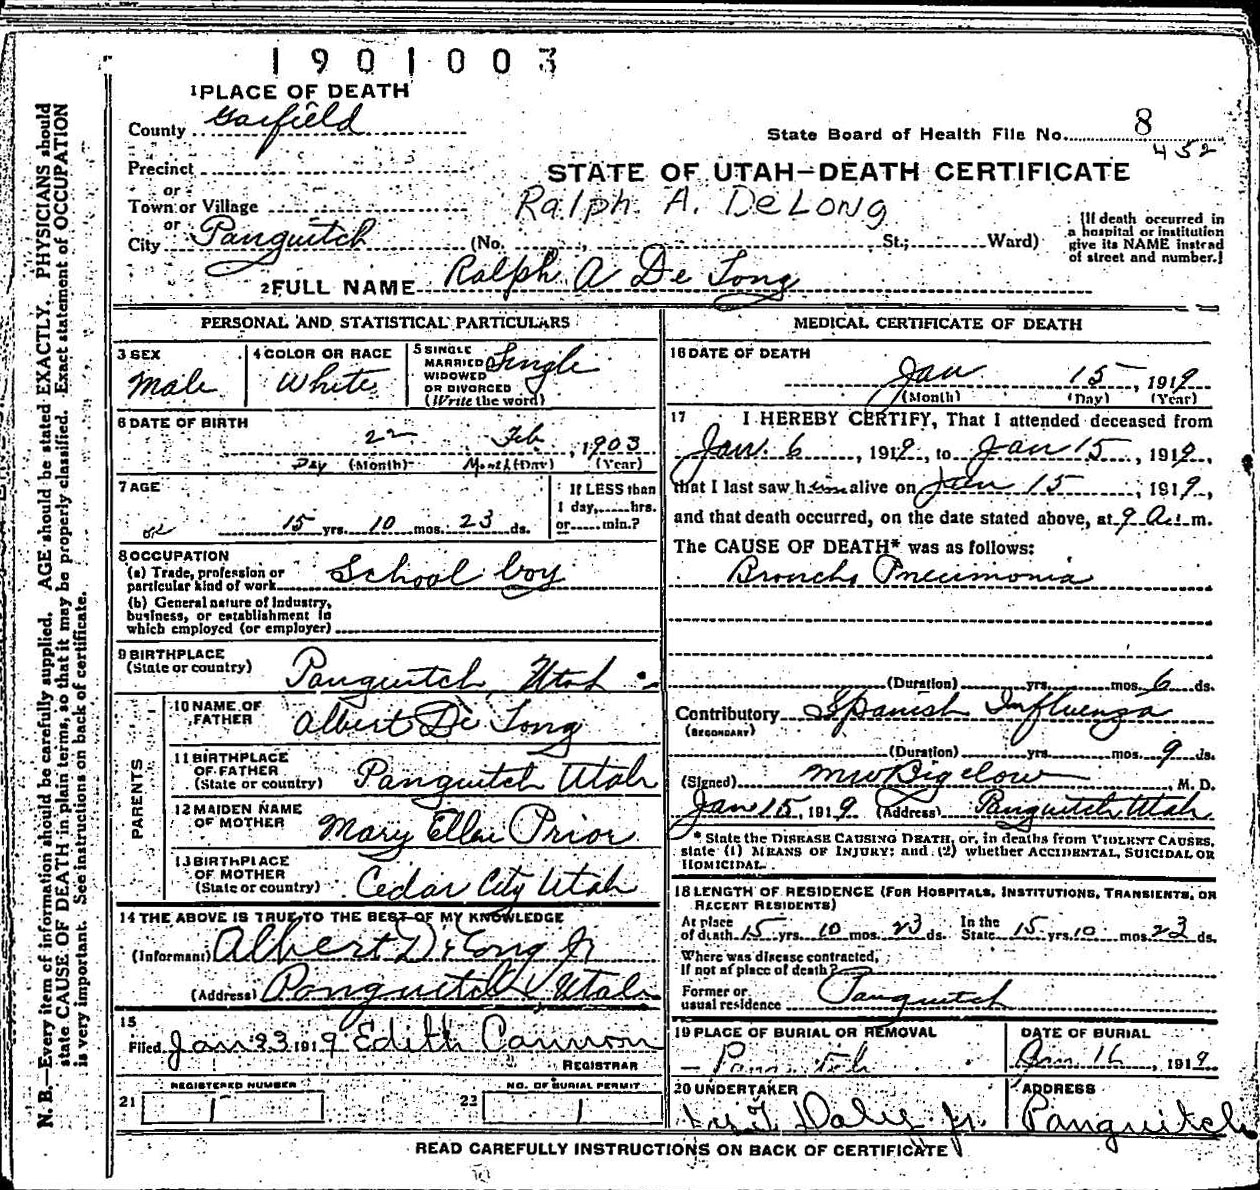 1901003
1 PLACE OF DEATH
County Garfield
State Board of Health File No. 8
452
Precinct
STATE OF UTAH—DEATH CERTIFICATE
or
Town or Village
Ralph A. DeLong
or
City Panguitch (No. , St.; Ward)
(If death occurred in
a hospital or institution
give its NAME instead
of street and number.)
2 FULL NAME Ralph A De Long
PERSONAL AND STATISTICAL PARTICULARS
3 SEX
Male
4 COLOR OR RACE
White
5 SINGLE
MARRIED
WIDOWED
OR DIVORCED
(Write the word)
Single
6 DATE OF BIRTH
22 Feb, 1903
Day (Month) Month (Day) (Year)
7 AGE
15 yrs. 10 mos. 23 ds.
If LESS than
1 day, hrs.
or min.?
or
8 OCCUPATION
(a) Trade, profession or
particular kind of work School boy
(b) General nature of Industry,
business, or establishment in
which employed (or employer)
9 BIRTHPLACE
(State or country) Panguitch, Utah
PARENTS
10 NAME OF
FATHER Albert De Long
11 BIRTHPLACE
OF FATHER
(State or country) Panguitch Utah
12 MAIDEN NAME
OF MOTHER Mary Ellen Prior
13 BIRTHPLACE
OF MOTHER
(State or country) Cedar City Utah
14 THE ABOVE IS TRUE TO THE BEST OF MY KNOWLEDGE
(Informant) Albert De Long Jr
(Address) Panguitch Utah
15
Filed Jan 23 1919 Edith Cannon
REGISTRAR
REGISTERED NUMBER
21 1
NO. OF BURIAL PERMIT
22 1
MEDICAL CERTIFICATE OF DEATH
16 DATE OF DEATH
Jan 15, 1919
(Month) (Day) (Year)
17 I HEREBY CERTIFY, That I attended deceased from
Jan. 6, 1919, to Jan 15, 1919,
that I last saw him alive on Jan 15, 1919,
and that death occurred, on the date stated above, at 9 A. m.
The CAUSE OF DEATH* was as follows:
Broncho Pneumonia
(Duration) yrs. mos. 6 ds.
Contributory Spanish Influenza
(SECONDARY)
(Duration) yrs. mos. 9 ds.
(Signed) MW Bigelow M. D.
Jan 15, 1919 (Address) Panguitch Utah
* State the DISEASE CAUSING DEATH, or, in deaths from VIOLENT CAUSES,
state (1) MEANS OF INJURY; and (2) whether ACCIDENTAL, SUICIDAL OR
HOMICIDAL.
18 LENGTH OF RESIDENCE (FOR HOSPITALS, INSTITUTIONS, TRANSIENTS, OR
RECENT RESIDENTS)
At place
of death 15 yrs. 10 mos. 23 ds.
In the
State 15 yrs. 10 mos. 23 ds.
Where was disease contracted,
if not at place of death?
Former or
usual residence Panguitch
19 PLACE OF BURIAL OR REMOVAL
Panguitch
DATE OF BURIAL
Jan. 16, 1919
20 UNDERTAKER
Daly Jr.
ADDRESS
Panguitch
READ CAREFULLY INSTRUCTIONS ON BACK OF CERTIFICATE
N. B.—Every item of information should be carefully supplied. AGE should be stated EXACTLY. PHYSICIANS should
state CAUSE OF DEATH in plain terms, so that it may be properly classified. Exact statement of OCCUPATION
is very important. See instructions on back of certificate.